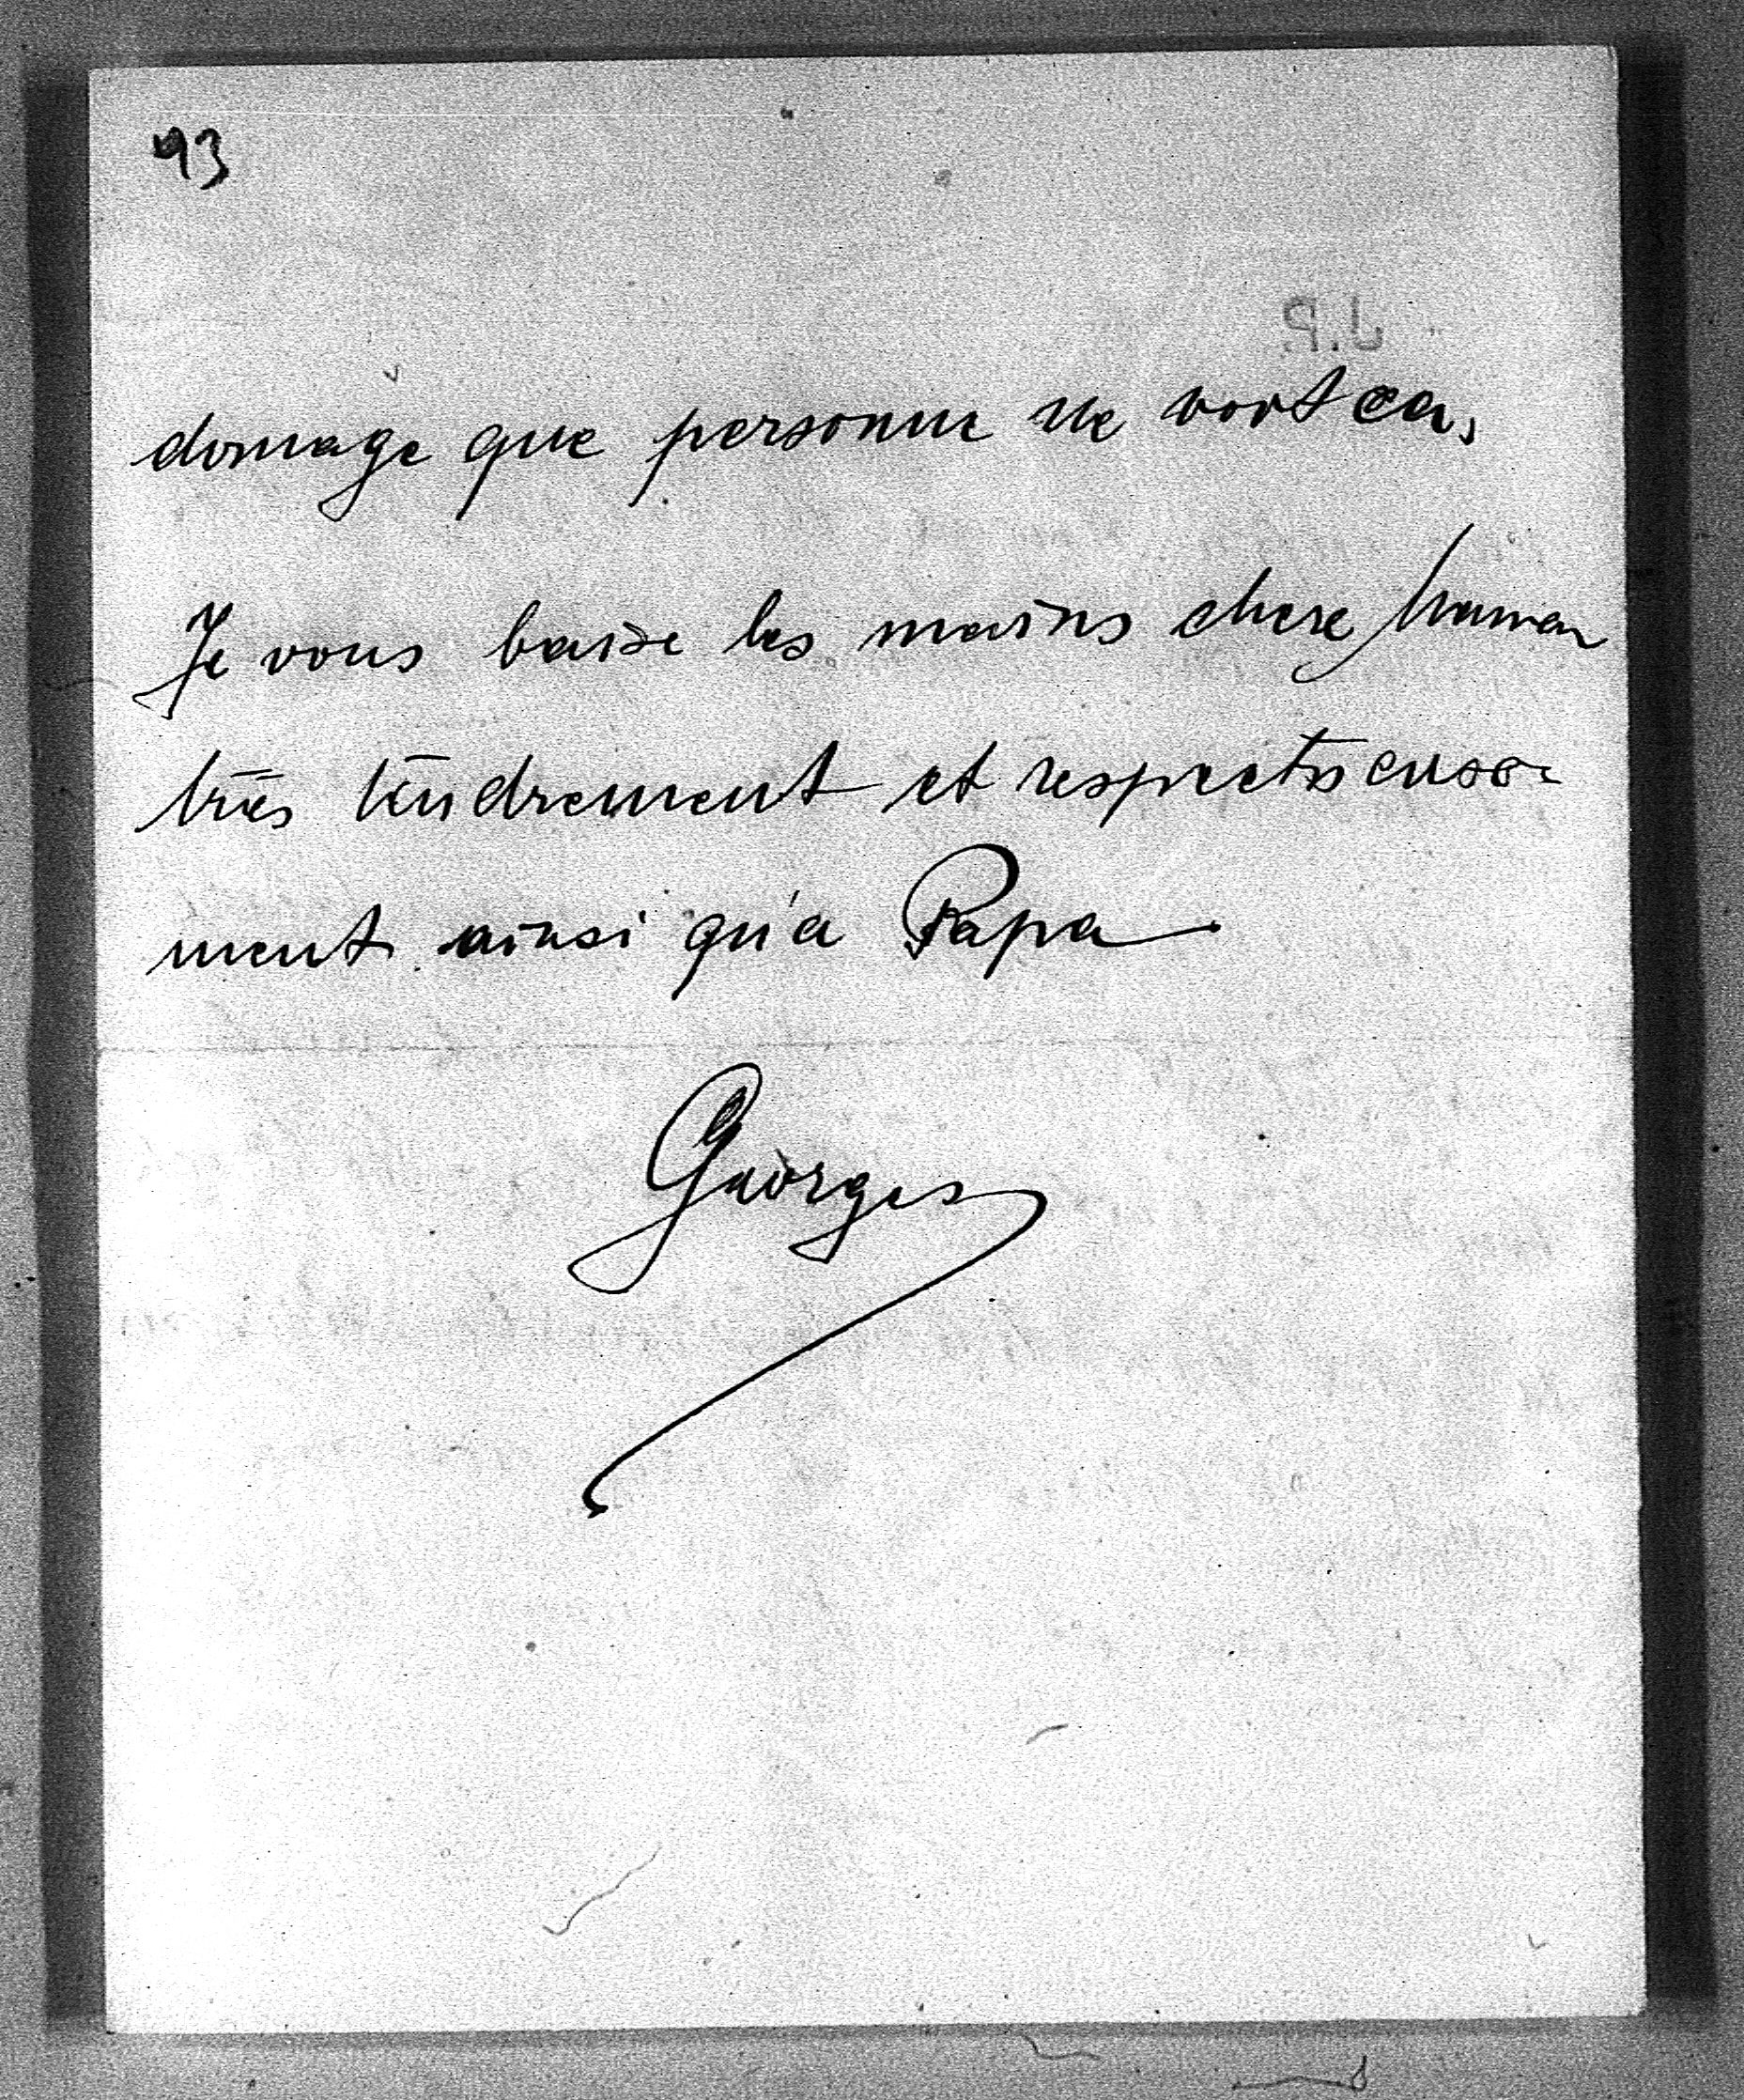 93
J.P.
domage que personne ne voit ca,
Je vous baise les mains chere Maman
très tendrement et respectueuse
ment ainsi qu'a Papa
Georges